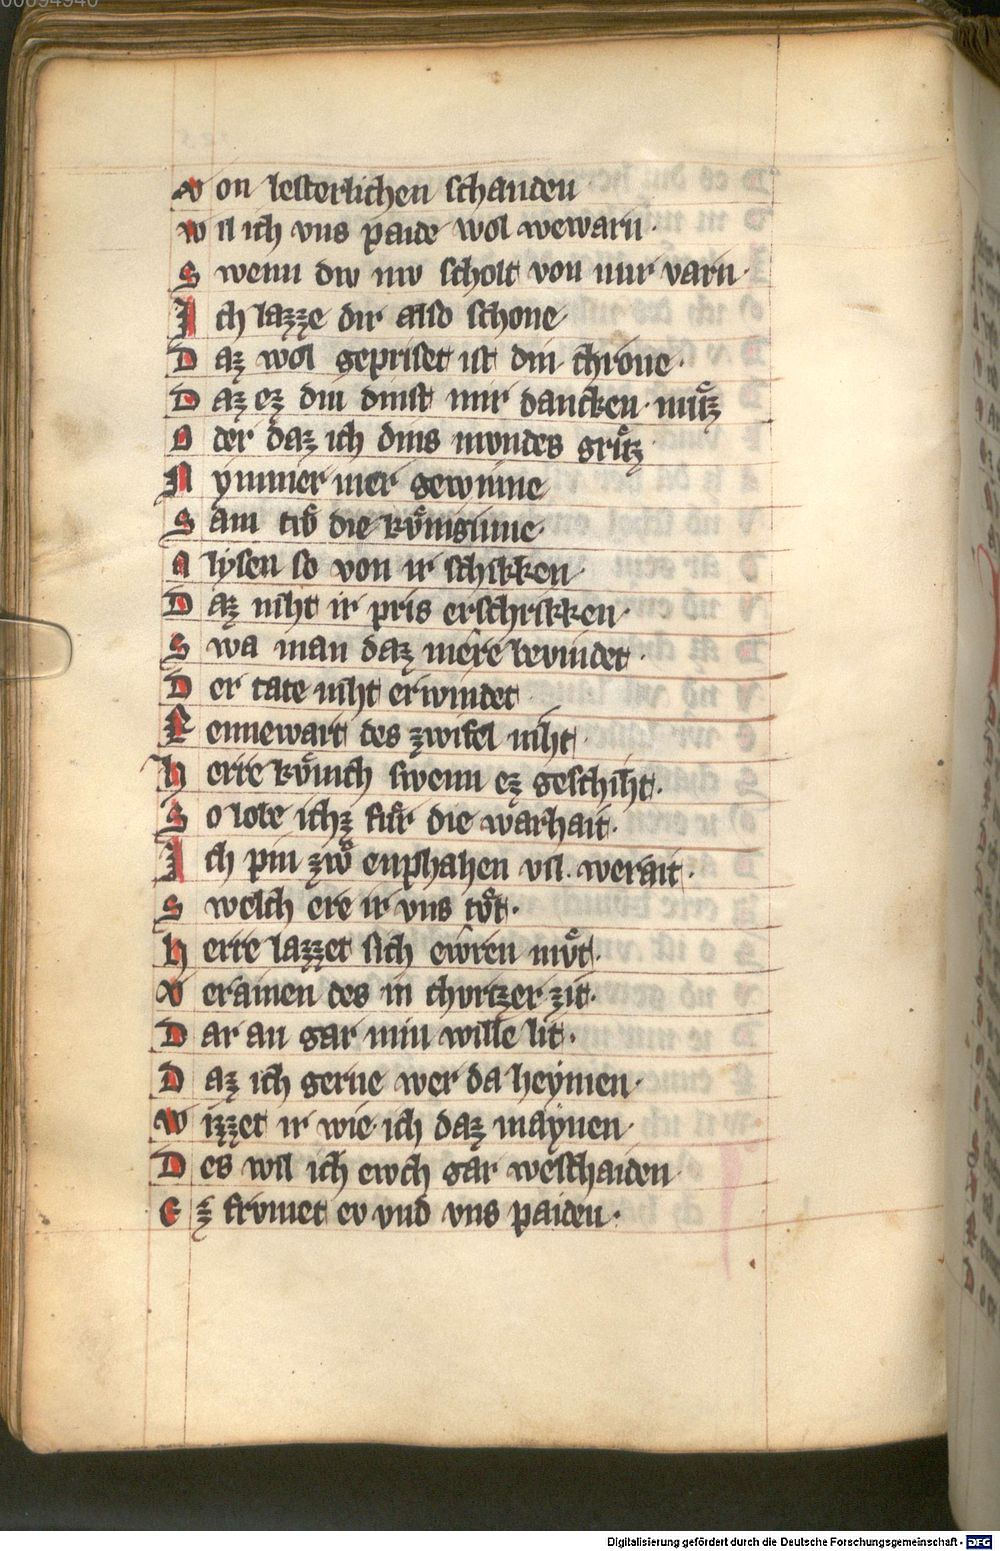 Von lesterlichen schanden
Wil ich vns paide wol wewarn·
Swenn div nv scholt von mir varn·
Ich lazze dir also schone
Daz wol geprîset ist din chrone·
Daz ez din dinst mir dancken mv̊z
Oder daz ich dins mvndes grv̊z
Nymmer mer gewinne
Sam tv̊ die kv̊niginne·
Alysen so von ir schikken·
Daz niht ir pris erschrikken·
Swa man daz mere bevindet·
Der tate niht erwindet
Rennewart des zwifel niht·
Herre kv̊nich swenn ez geschiht·
So lobe ichz fu̇r die warhait·
Ich pin zwv̊ enphahen vil werait·
Swelch ere ir vns tv̊t·
Herre lazzet sich ewren mv̊t·
Veramen des in chvrtzer zit·
Dar an gar min wille lit·
Daz ich gerne wer da heymen·
Wizzet ir wie ich daz maynen·
Des wil ich ewch gar weschaiden·
Ez frvmet ev vnd vns paiden·
Digitalisierung gefördert durch die Deutsche Forschungsgemeinschaft - DFG